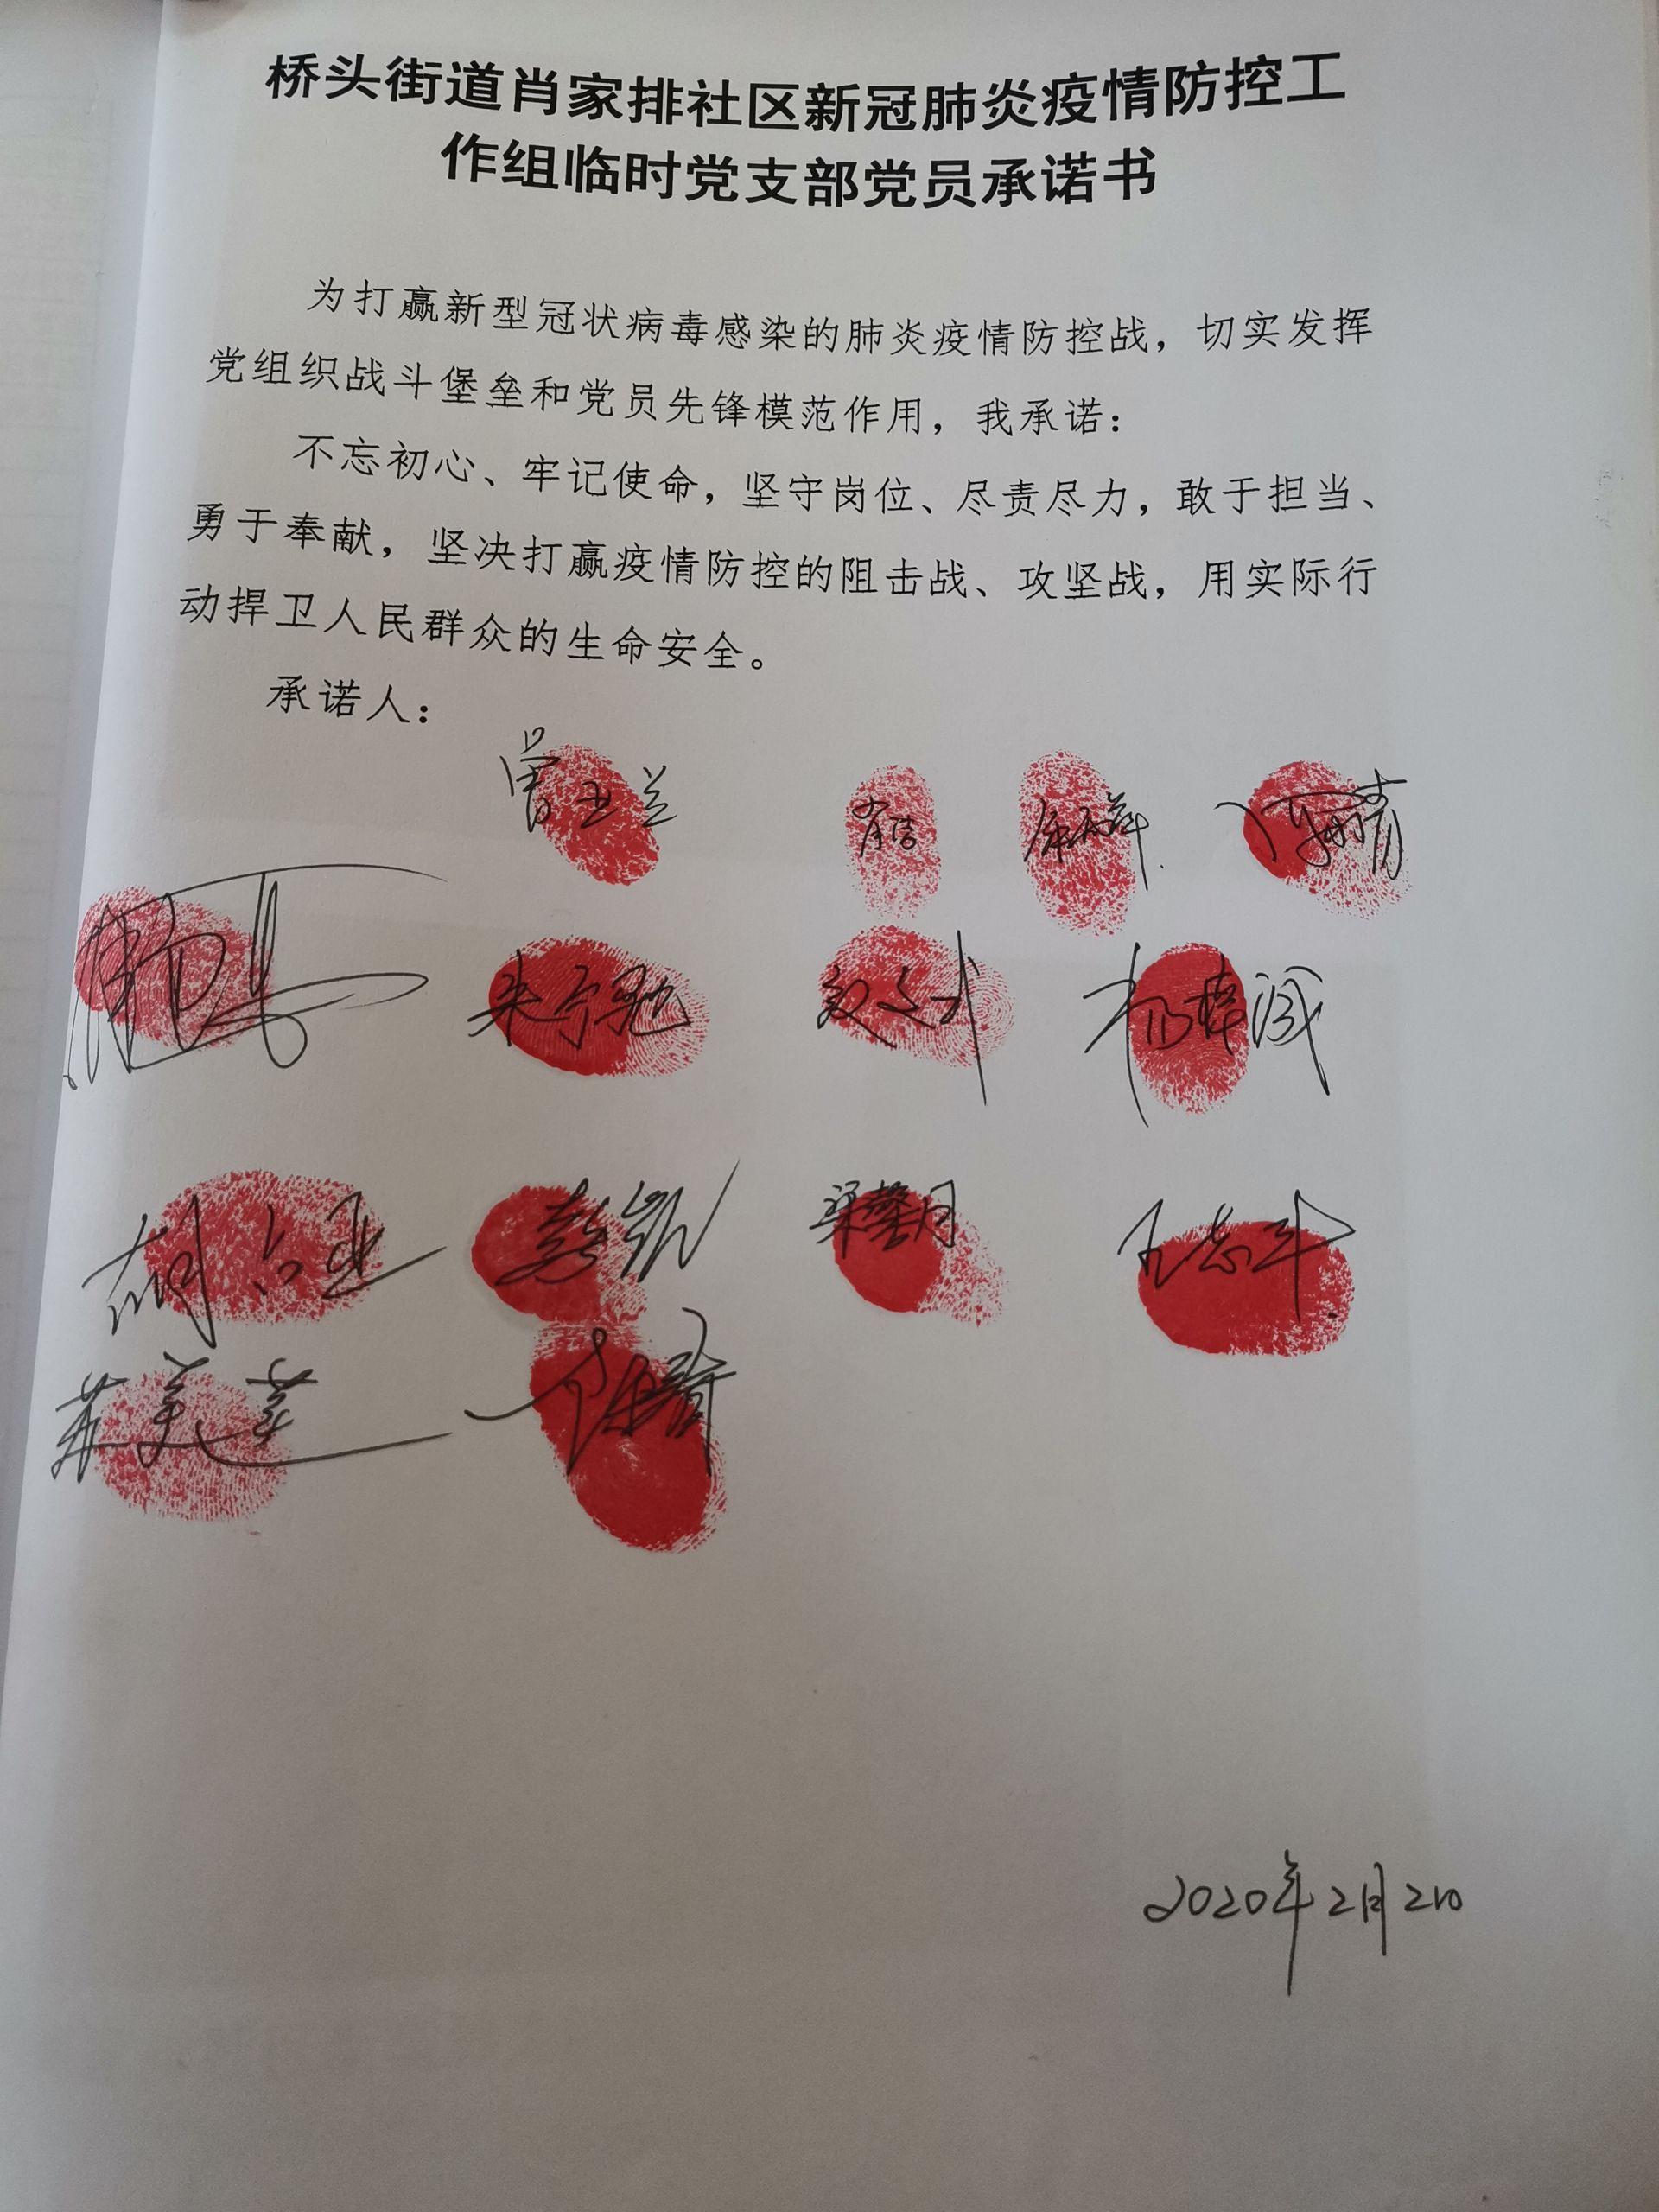 桥头街道肖家排社区新冠肺炎疫情防控工
作组临时党支部党员承诺书
为打赢新型冠状病毒感染的肺炎疫情防控战，切实发挥
党组织战斗堡垒和党员先锋模范作用，我承诺：
不忘初心、牢记使命，坚守岗位、尽责尽力，敢于担当、
勇于奉献，坚决打赢疫情防控的阻击战、攻坚战，用实际行
动捍卫人民群众的生命安全。
承诺人：
曾玉兰
朱宁驰
梁馨月
苏美莲
2020年2月2日